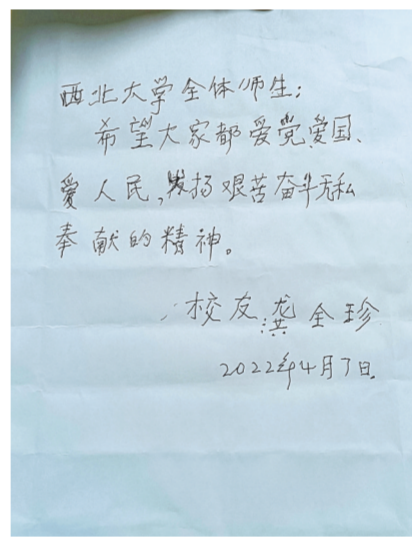 西北大学全体师生：
希望大家都爱党爱国、
爱人民，发扬艰苦奋斗无私
奉献的精神。
校友 龚全珍
2022年4月7日.